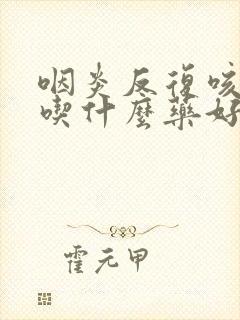 咽炎反復咳
喫什麼藥好
霍元甲